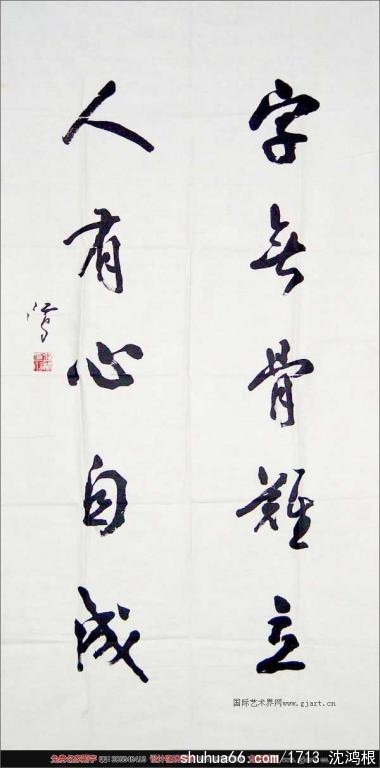 字無骨難立
人有心自成
国际艺术界网www.gjart.cn
shuhua66.com/1713.沈鸿根